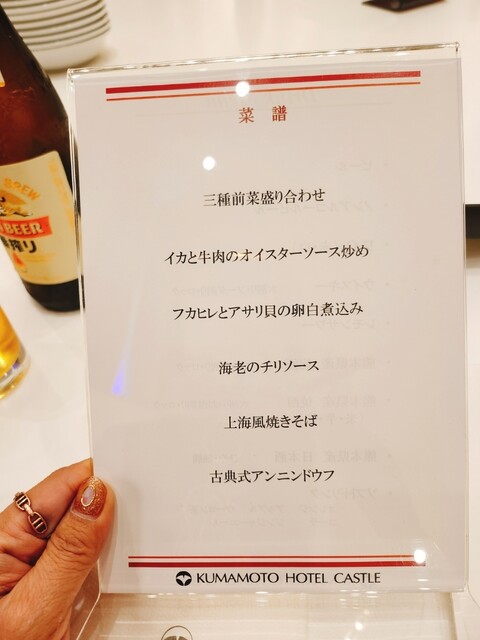 菜譜
三種前菜盛り合わせ
イカと牛肉のオイスターソース炒め
フカヒレとアサリ貝の卵白煮込み
海老のチリソース
上海風焼きそば
古典式アンニンドウフ
KUMAMOTO HOTEL CASTLE
BREW
BEER
搾り